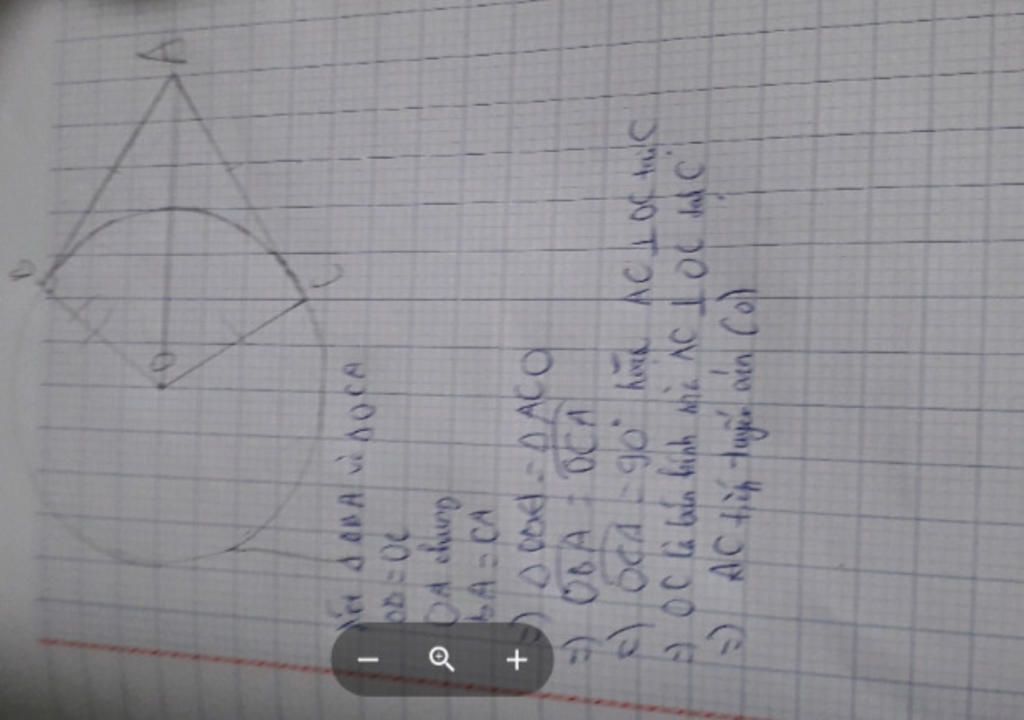 A
B
C
O
Xét Δ OBA và Δ OCA
OB = OC
OA chung
BA = CA
=) Δ OBA = Δ ACO
=) OBA = OCA
=) OCA = 90° AC ⊥ OC tại C
=) OC là bán kính mà AC ⊥ OC tại C
=) AC tiếp tuyến (O)